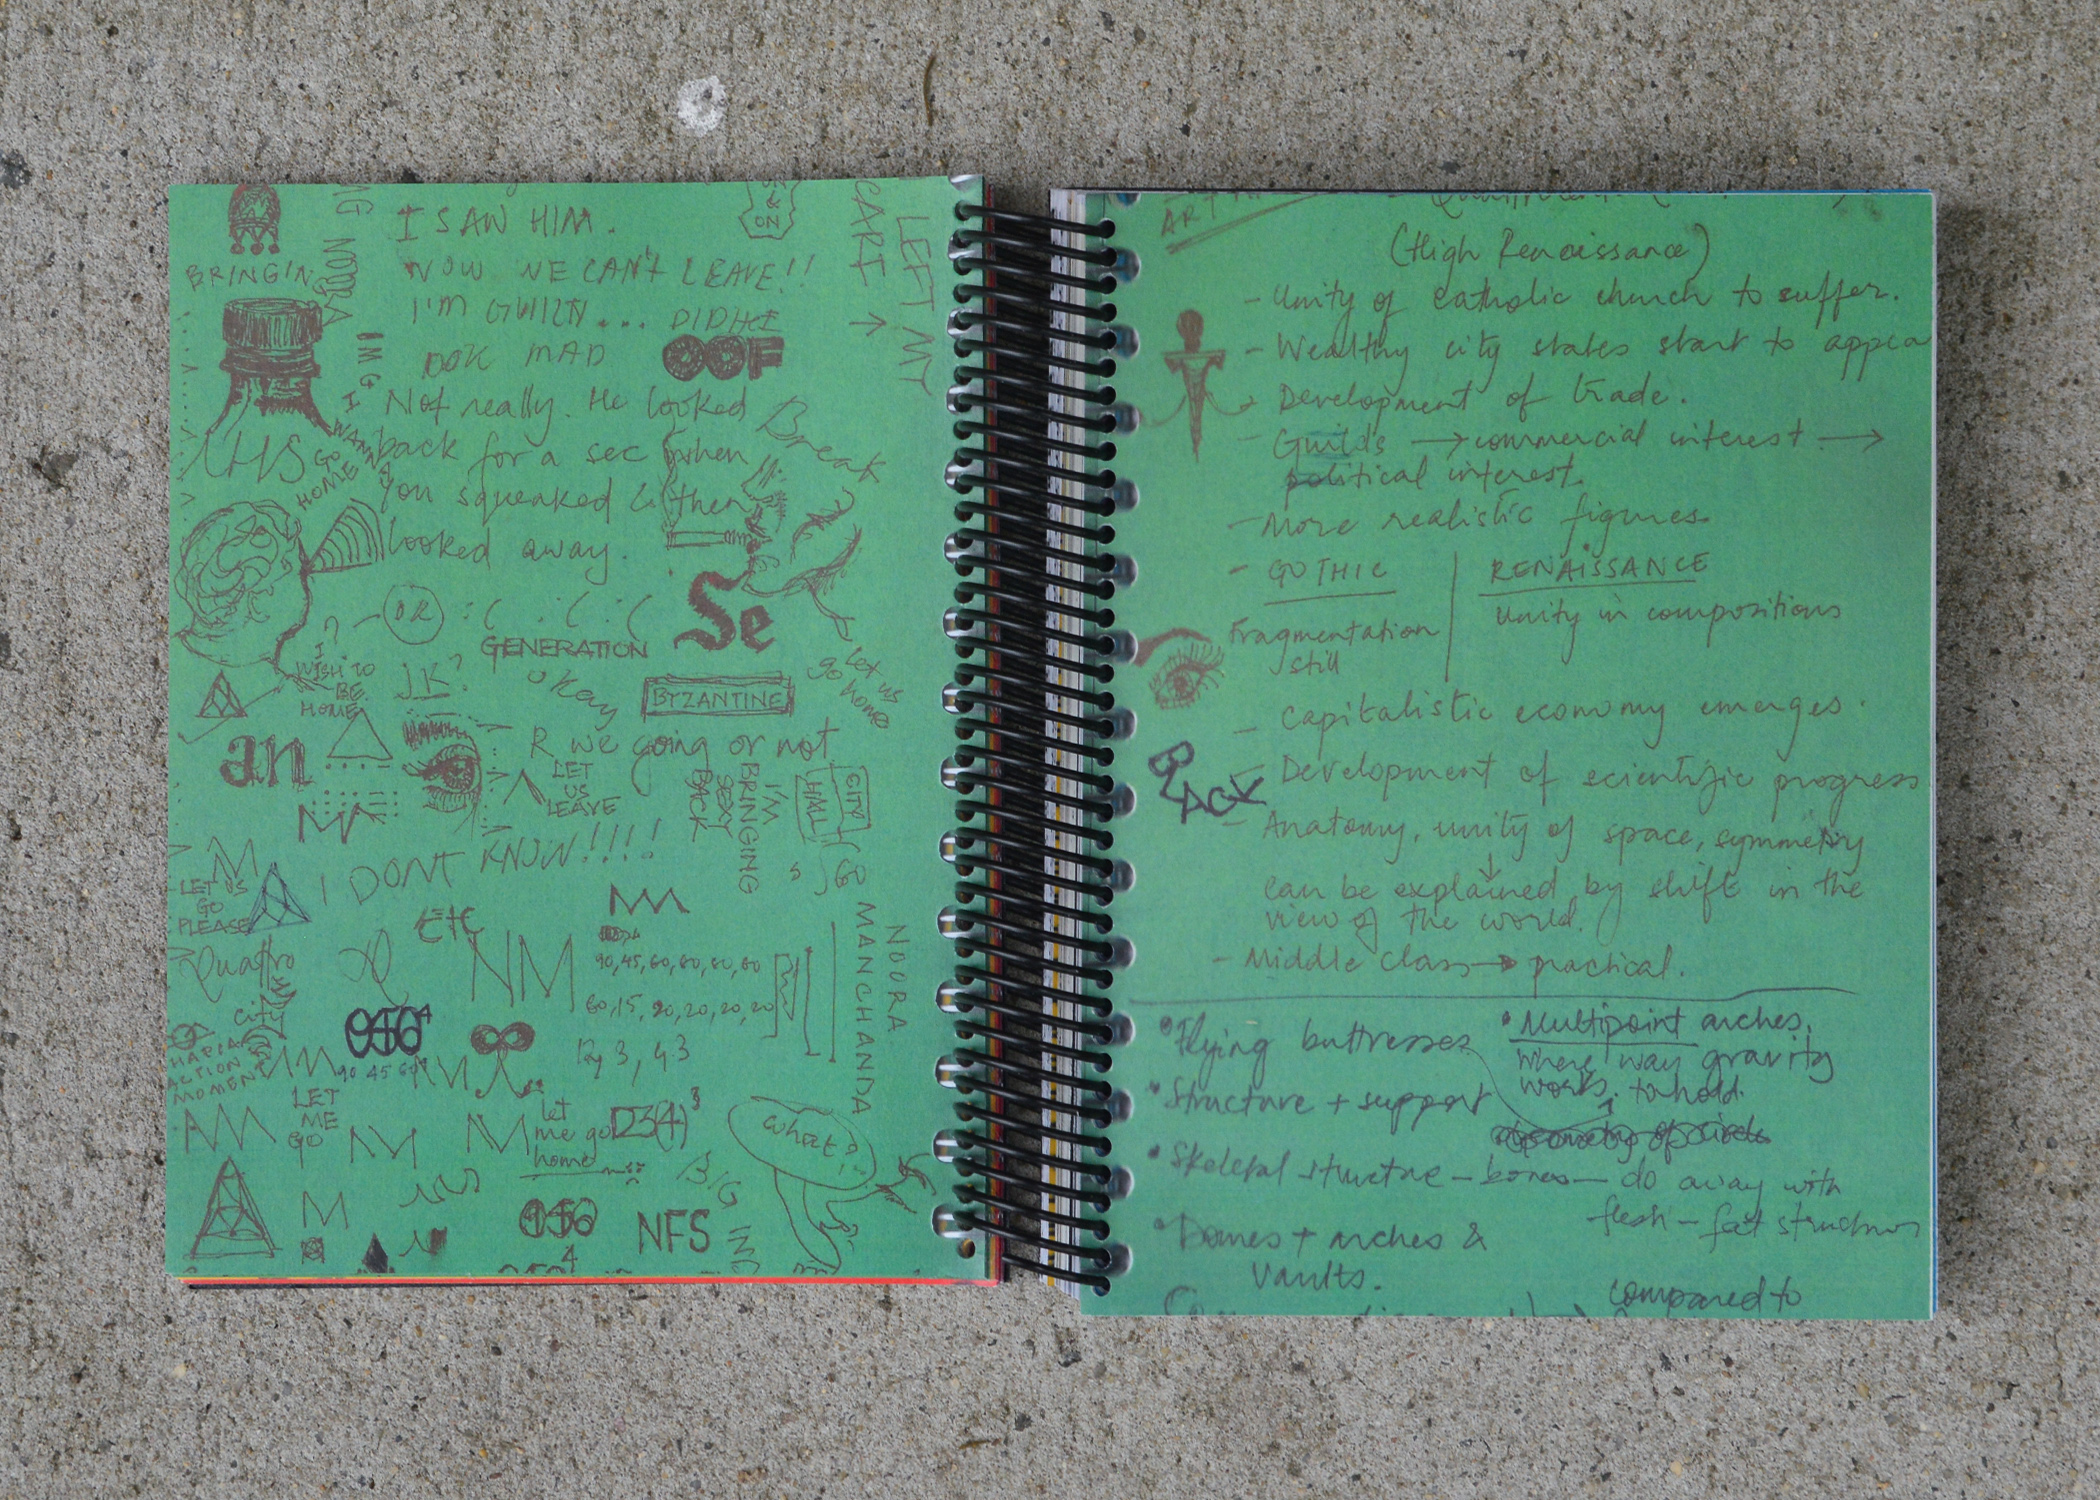 BRINGIN
I SAW HIM.
NOW WE CAN'T LEAVE!!
I'M GUILTY... DID HE
LOOK MAD
OOF
Not really. He looked
back for a sec when
you squeaked & then
looked away.
Break
CARE →
LEFT MY
I WANNA
GO
HOME
? — OR :( :( :(
GENERATION
Se
I
WISH TO
BE
HOME
J.K?
okay
BYZANTINE
let us
go home
an
R we going or not
LET
US
LEAVE
I'M
BRINGING
SEXY
BACK
CITY
HALL
M
I DONT KNOW!!!!
LET US
GO
PLEASE
ETC
NM
90, 45, 60, 80, 80, 80
60, 15, 20, 20, 20, 20
NOORA
MANCHANDA
Quattro
city
9564
90 45 60
ACTION
MOMENT
LET
ME
GO
let
me go
home
1234
what?!
BIG
M
NFS
4
ART
(High Renaissance)
- Unity of catholic church to suffer.
- Wealthy city states start to appea
- Development of trade.
- Guilds → commercial interest →
political interest.
- More realistic figures
- GOTHIC | RENAISSANCE
Fragmentation
still
Unity in compositions
- Capitalistic economy emerges.
BLACK
- Development of scientific progress
- Anatomy, unity of space, symmetry
↓
can be explained by shift in the
view of the world.
- Middle Class → practical.
• Flying buttresses
• Multipoint arches,
where way gravity
works. to hold.
• Structure + support
• Skeletal structure - bones - do away with
flesh - fat structures
• Domes + arches &
vaults.
compared to